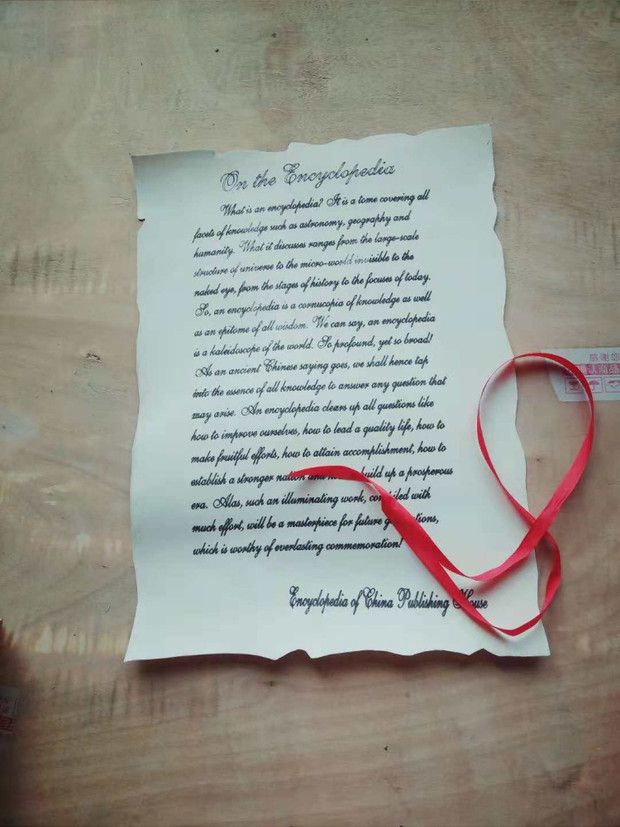 On the Encyclopedia
What is an encyclopedia? It is a tome covering all
facets of knowledge such as astronomy, geography and
humanity. What it discusses ranges from the large-scale
structure of universe to the micro-world invisible to the
naked eye, from the stages of history to the focuses of today.
So, an encyclopedia is a cornucopia of knowledge as well
as an epitome of all wisdom. We can say, an encyclopedia
is a kaleidoscope of the world. So profound, yet so broad!
As an ancient Chinese saying goes, we shall hence tap
into the essence of all knowledge to answer any question that
may arise. An encyclopedia clears up all questions like
how to improve ourselves, how to lead a quality life, how to
make fruitful efforts, how to attain accomplishment, how to
establish a stronger nation and build up a prosperous
era. Alas, such an illuminating work, compiled with
much effort, will be a masterpiece for future generations,
which is worthy of everlasting commemoration!
Encyclopedia of China Publishing House
感谢您